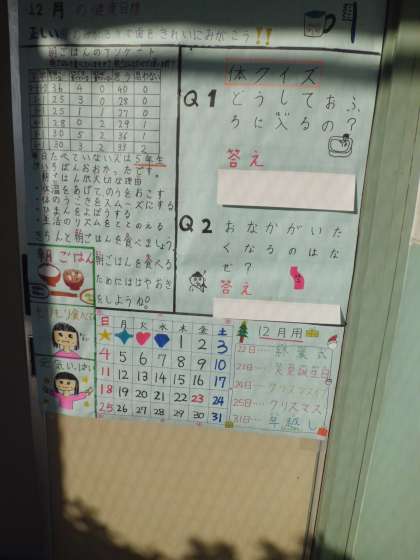 12月の健康目標
正しい歯のみがき方で歯をきれいにみがこう!!
朝ごはんのアンケート
36 4 0 40 0
25 3 0 28 0
25 1 1 27 0
28 0 2 29 1
30 5 2 36 1
30 3 2 33 2
毎日たべていない人は5年生
がいちばんおおかったです。
朝ごはんが大切な理由
・体温をあげてのうをおこす
・体のうごきをスムーズにする
・ひまんをよぼうする
・生活のリズムをととのえる
きちんと朝ごはんを食べましょう
朝ごはんを食べる
ためにははやおき
をしようね。
朝ごはん
体クイズ
Q1
どうしておふ
ろに入るの?
答え
Q2
おなかがいた
くなるのはな
ぜ?
答え
日 月 火 水 木 金 土
1 2 3
4 5 6 7 8 9 10
11 12 13 14 15 16 17
18 19 20 21 22 23 24
25 26 27 28 29 30 31
12月用
22日…終業式
23日…天皇誕生日
24日…クリスマスイブ
25日…クリスマス
31日…年越し